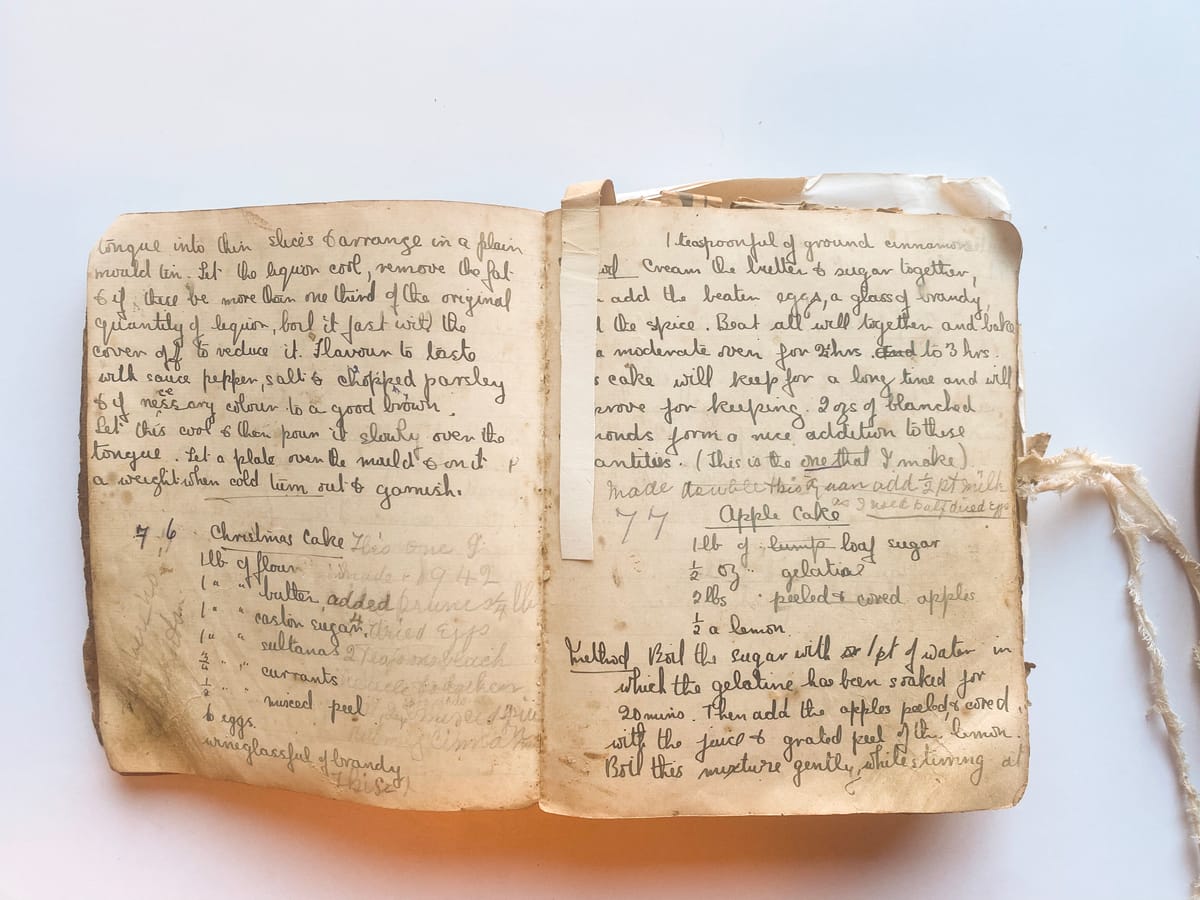 tongue into thin slices & arrange in a plain
mould tin. Let the liquor cool, remove the fat
& if there be more than one third of the original
quantity of liquor, boil it fast with the
cover off to reduce it. Flavour to taste
with sauce pepper, salt & chopped parsley
& if necessary colour to a good brown.
Let this cool & then pour it slowly over the
tongue. Let a plate over the mould & on it
a weight when cold turn out & garnish.
76 Christmas Cake This one I
1 lb of flour made 1942
1 " " butter, added prunes 3/4 lb
1 " " castor sugar, 4 dried eggs
1 " " sultanas 2
3/4 " " currants
1/2 " " minced peel
6 eggs.
wineglassful of brandy
1 teaspoonful of ground cinnamon
Cream the butter & sugar together,
add the beaten eggs, a glass of brandy,
the spice. Beat all well together and bake
a moderate oven for 2½ hrs. to 3 hrs.
cake will keep for a long time and will
for keeping. 2 ozs of blanched
form a nice addition to these
(This is the one that I make)
made double this quan add ½ pt milk
as I used half dried eggs
77 Apple Cake
1 lb of lump loaf sugar
½ oz " gelatine
2 lbs " peeled & cored apples
½ a lemon.
Method Boil the sugar with 1 pt of water in
which the gelatine has been soaked for
20 mins. Then add the apples peeled & cored,
with the juice & grated peel of the lemon.
Boil this mixture gently, whilst stirring at